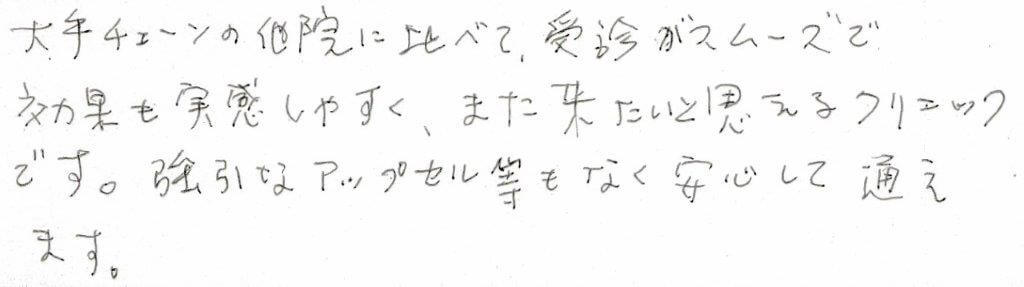 大手チェーンの他院に比べて、受診がスムーズで
効果も実感しやすく、また来たいと思えるクリニック
です。強引なアップセル等もなく安心して通え
ます。